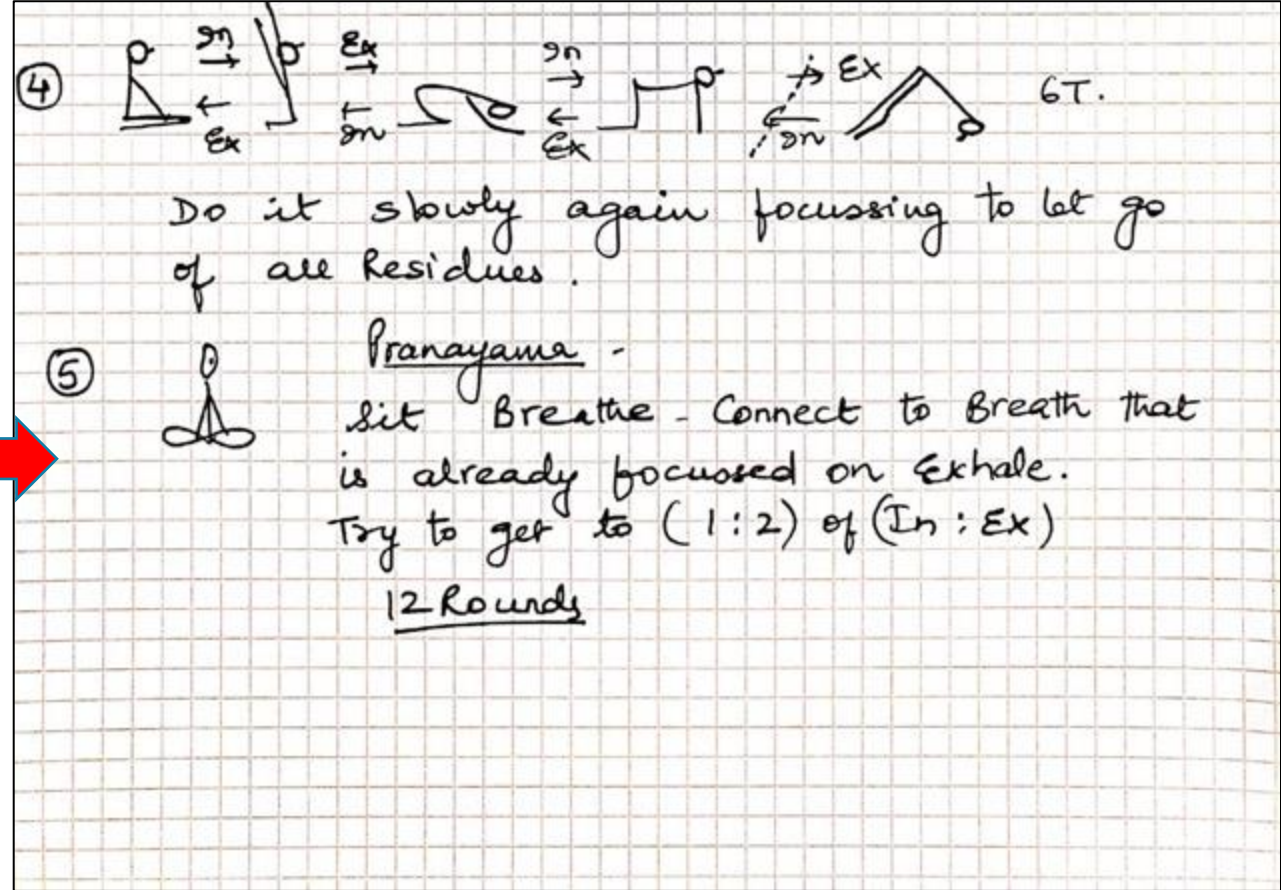 ④ In Ex In Ex 6T.
Ex In Ex In
Do it slowly again focussing to let go
of all Residues.
⑤ Pranayama -
Sit Breathe - Connect to Breath that
is already focussed on Exhale.
Try to get to (1:2) of (In : Ex)
12 Rounds